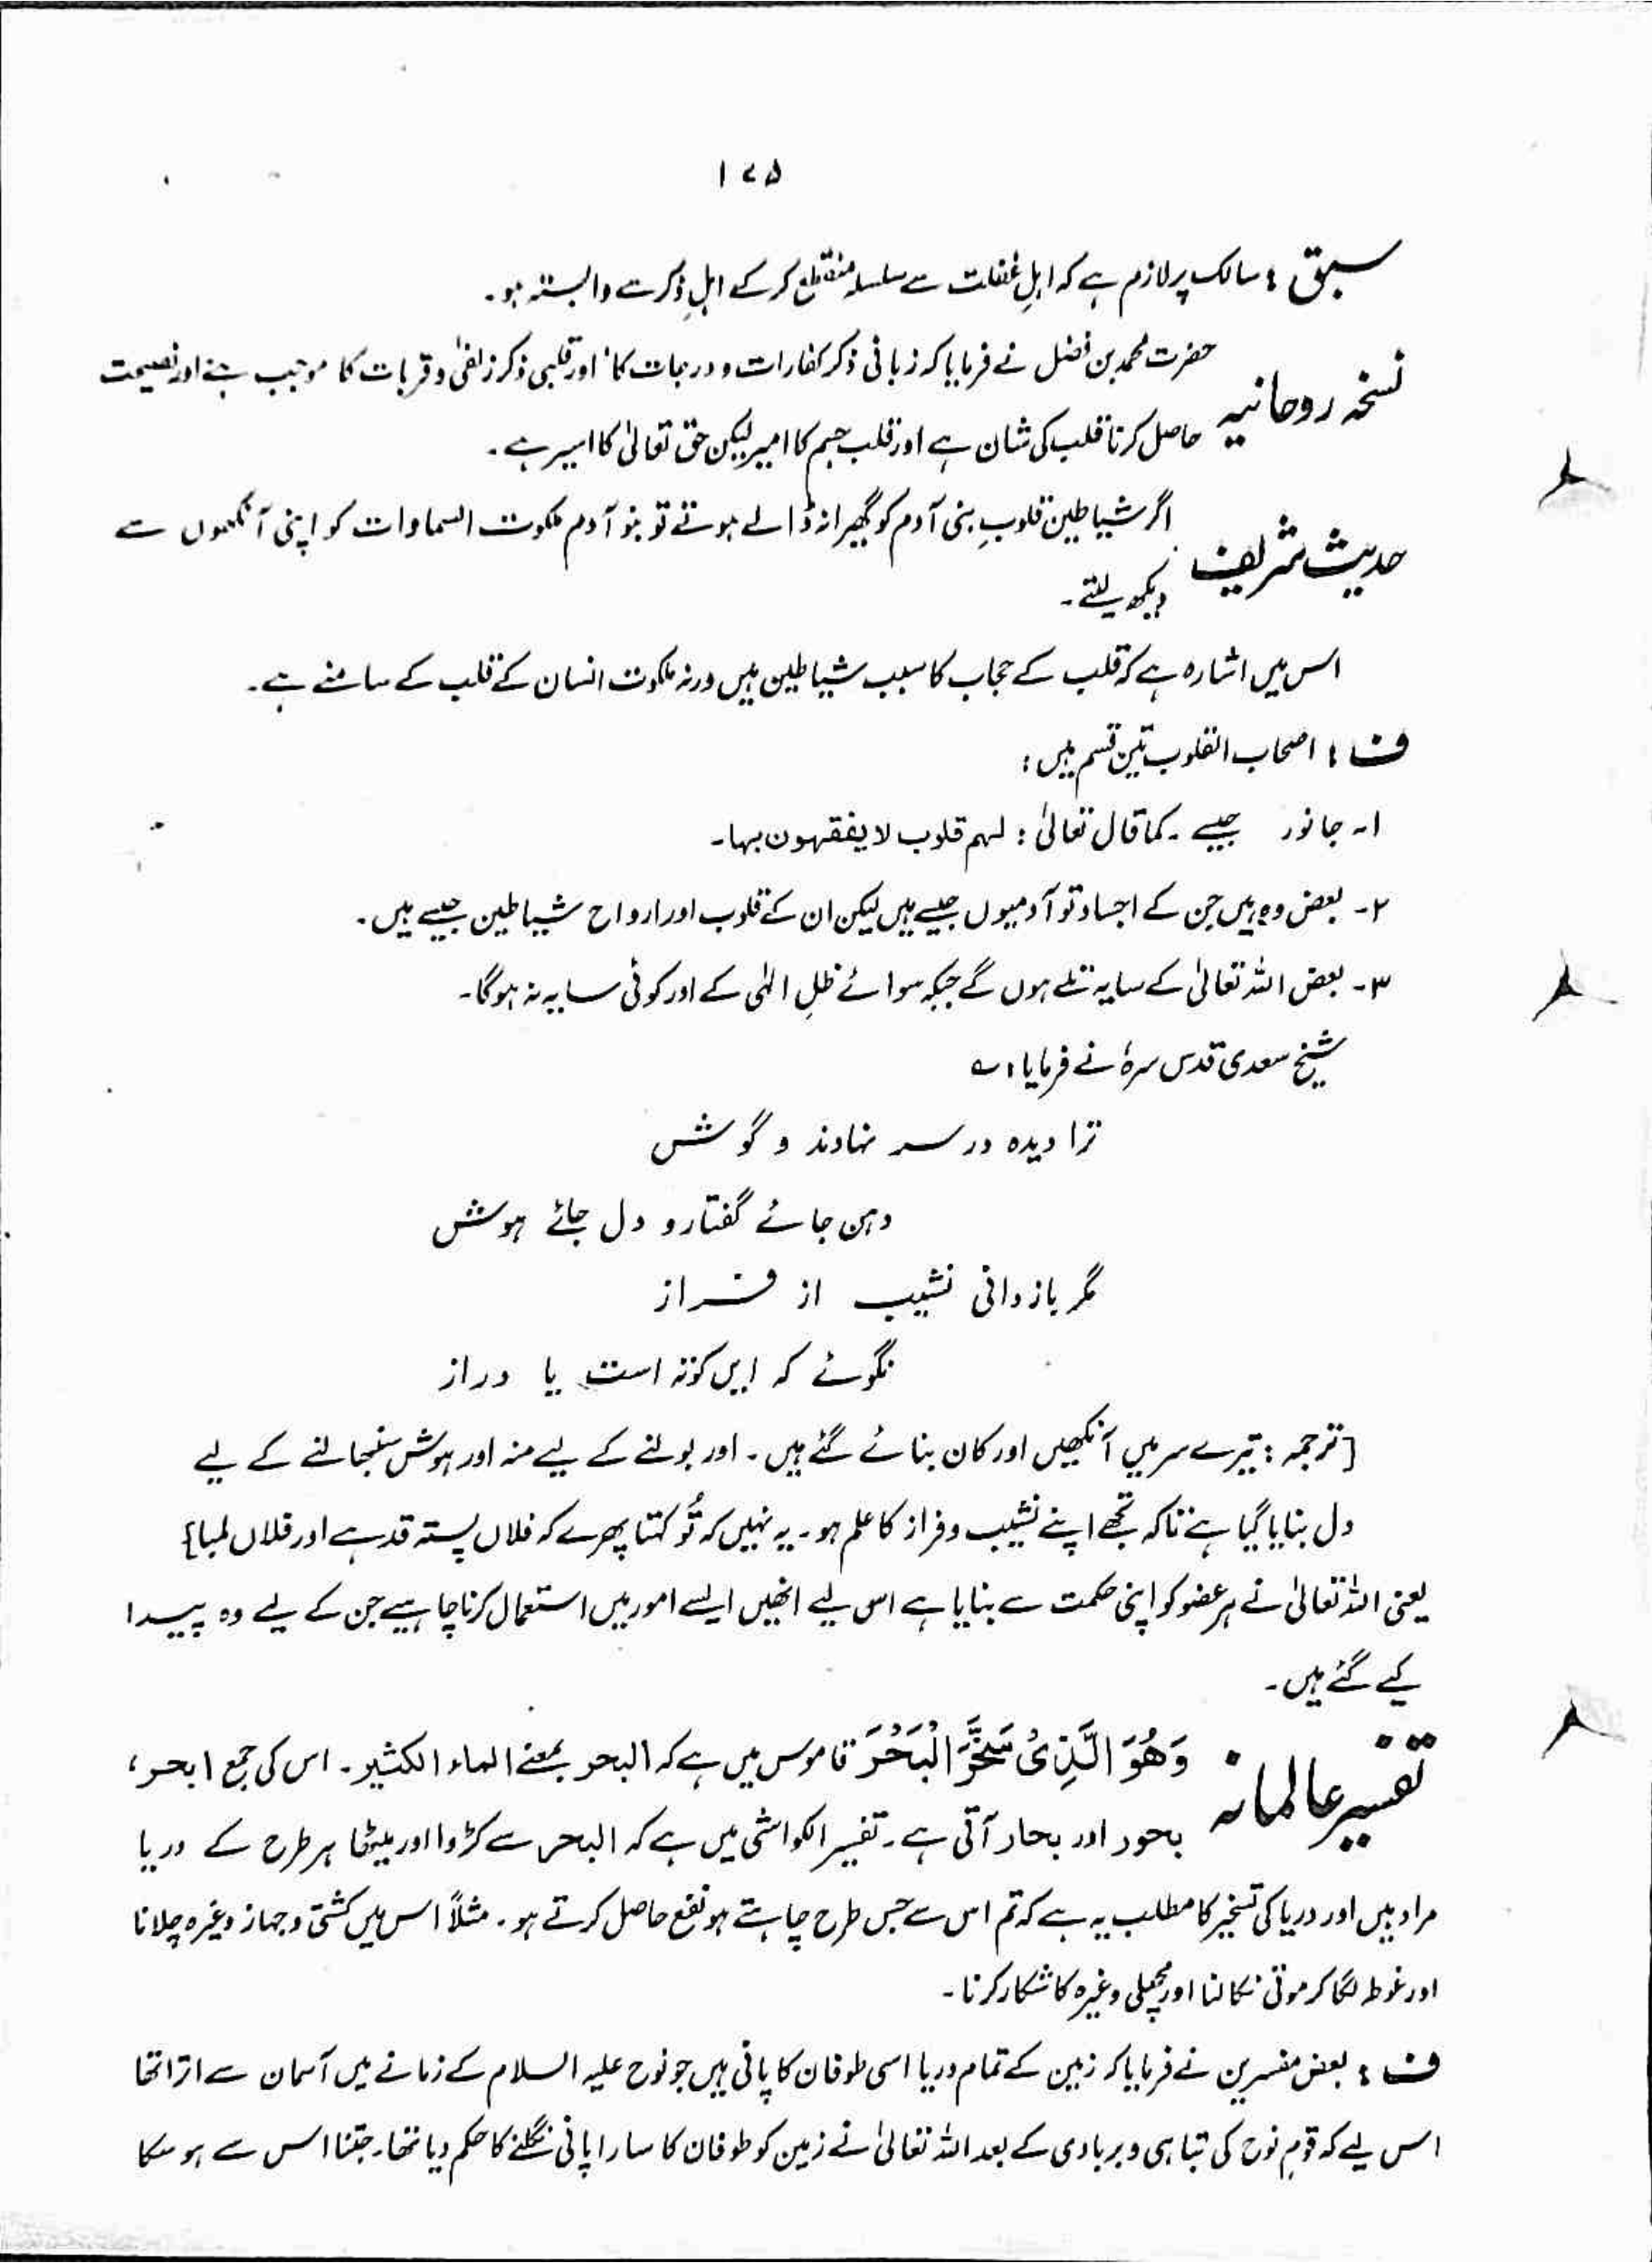 ۱۷۵
سبق : سالک پر لازم ہے کہ اہلِ غفلت سے سلسلہ منقطع کر کے اہلِ ذکر سے وابستہ ہو۔
نسخہ روحانیہ حضرت محمد بن فضل نے فرمایا کہ زبانی ذکر کفارات و درجات کا اور قلبی ذکر زلفیٰ و قربات کا موجب ہے اور نصیحت
حاصل کرنا قلب کی شان ہے اور قلب جسم کا امیر لیکن حق تعالیٰ کا اسیر ہے۔
حدیث شریف اگر شیاطین قلوبِ بنی آدم کو گھیرا نہ ڈالے ہوتے تو بنو آدم ملکوت السماوات کو اپنی آنکھوں سے
دیکھ لیتے۔
اس میں اشارہ ہے کہ قلب کے حجاب کا سبب شیاطین ہیں ورنہ ملکوت انسان کے قلب کے سامنے ہے۔
ف : اصحاب القلوب تین قسم ہیں :
۱۔ جانور جیسے ۔ کما قال تعالیٰ : لہم قلوب لا یفقہون بہا۔
۲۔ بعض وہ ہیں جن کے اجساد تو آدمیوں جیسے ہیں لیکن ان کے قلوب اور ارواح شیاطین جیسے ہیں۔
۳۔ بعض اللہ تعالیٰ کے سایہ تلے ہوں گے جبکہ سوائے ظلِ الٰہی کے اور کوئی سایہ نہ ہوگا۔
شیخ سعدی قدس سرہٗ نے فرمایا : ؎
ترا دیدہ در سر نہادند و گوش
دہن جائے گفتار و دل جائے ہوش
مگر باز دانی نشیب از فراز
نگوئے کہ ایں کوتہ است یا دراز
[ترجمہ : تیرے سر میں آنکھیں اور کان بنائے گئے ہیں۔ اور بولنے کے لیے منہ اور ہوش سنبھالنے کے لیے
دل بنایا گیا ہے تاکہ تجھے اپنے نشیب و فراز کا علم ہو۔ یہ نہیں کہ تُو کہتا پھرے کہ فلاں پستہ قد ہے اور فلاں لمبا]
یعنی اللہ تعالیٰ نے ہر عضو کو اپنی حکمت سے بنایا ہے اس لیے انھیں ایسے امور میں استعمال کرنا چاہیے جن کے لیے وہ پیدا
کیے گئے ہیں۔
تفسیر عالمانہ وَهُوَ الَّذِیْ سَخَّرَ الْبَحْرَ قاموس میں ہے کہ البحر بمعنے الماء الکثیر۔ اس کی جمع ابحر،
بحور اور بحار آتی ہے۔ تفسیر الکواشی میں ہے کہ البحر سے کڑوا اور میٹھا ہر طرح کے دریا
مراد ہیں اور دریا کی تسخیر کا مطلب یہ ہے کہ تم اس سے جس طرح چاہتے ہو نفع حاصل کرتے ہو۔ مثلاً اس میں کشتی و جہاز وغیرہ چلانا
اور غوطہ لگا کر موتی نکالنا اور مچھلی وغیرہ کا شکار کرنا۔
ف : بعض مفسرین نے فرمایا کہ زمین کے تمام دریا اسی طوفان کا پانی ہیں جو نوح علیہ السلام کے زمانے میں آسمان سے اترا تھا
اس لیے کہ قومِ نوح کی تباہی و بربادی کے بعد اللہ تعالیٰ نے زمین کو طوفان کا سارا پانی نگلنے کا حکم دیا تھا۔ جتنا اس سے ہو سکا